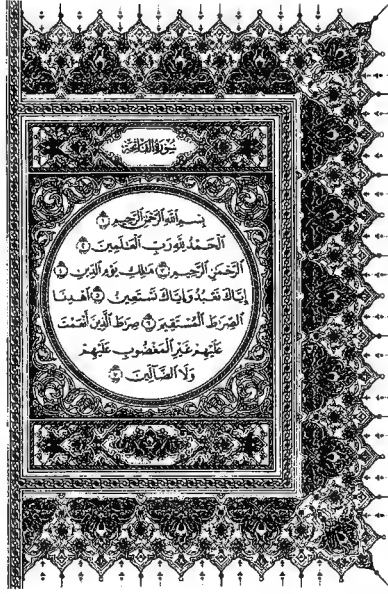 سُورَةُ الْفَاتِحَةِ
بِسْمِ اللَّهِ الرَّحْمَٰنِ الرَّحِيمِ ۝١
الْحَمْدُ لِلَّهِ رَبِّ الْعَالَمِينَ ۝٢
الرَّحْمَٰنِ الرَّحِيمِ ۝٣ مَالِكِ يَوْمِ الدِّينِ ۝٤
إِيَّاكَ نَعْبُدُ وَإِيَّاكَ نَسْتَعِينُ ۝٥ اهْدِنَا
الصِّرَاطَ الْمُسْتَقِيمَ ۝٦ صِرَاطَ الَّذِينَ أَنْعَمْتَ
عَلَيْهِمْ غَيْرِ الْمَغْضُوبِ عَلَيْهِمْ
وَلَا الضَّالِّينَ ۝٧